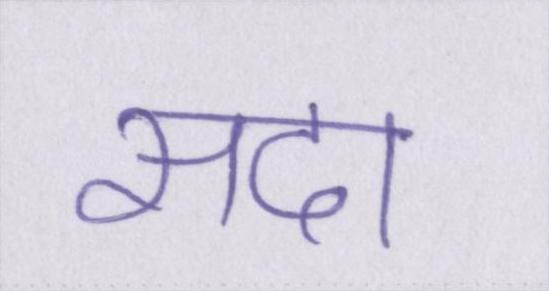 सदा